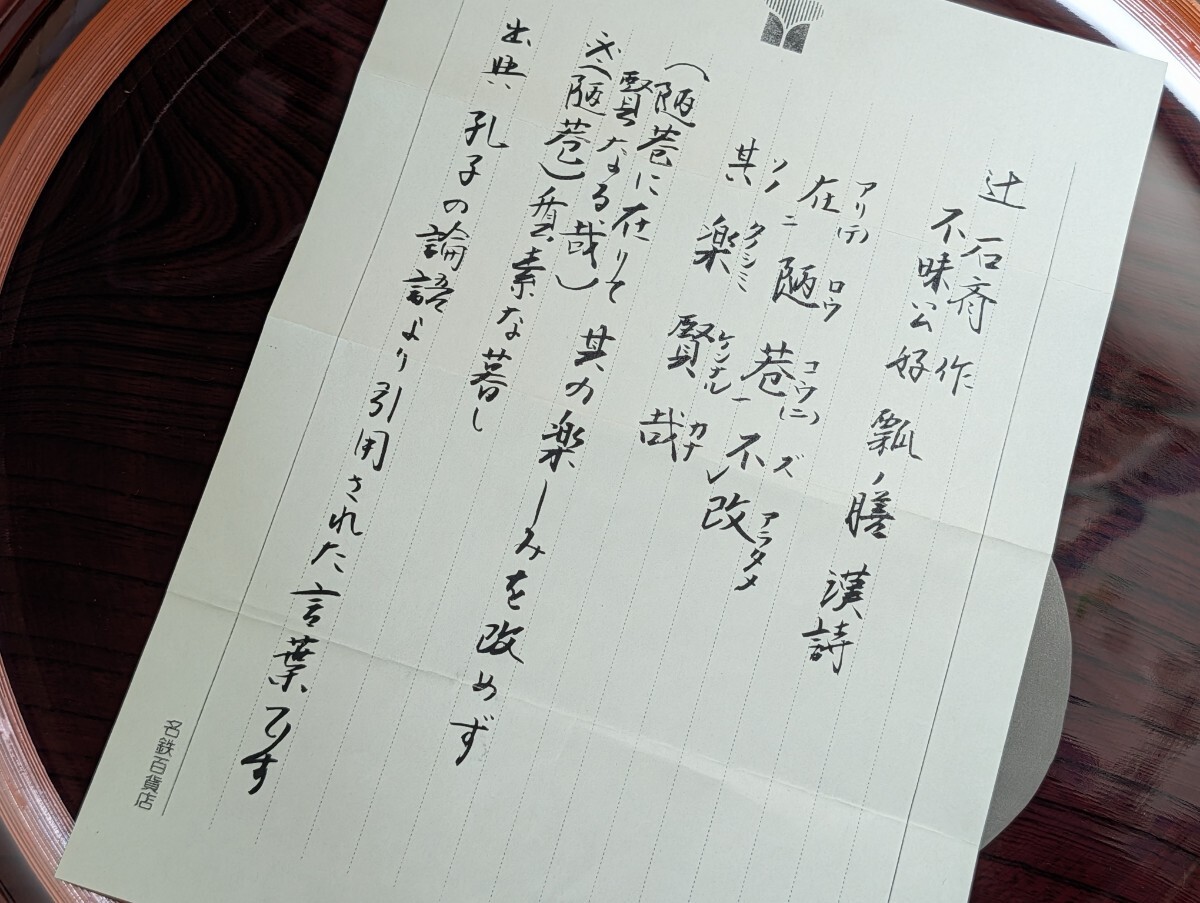 辻 石斉 作
不昧公好 瓢ノ膳 漢詩
アリ(テ) ロウ コウ(ニ) ズ アラタメ
在二陋巷一不レ改
ソノ タノシミ ケンナル カナ
其楽賢哉
(陋巷に在りて 其の楽しみを改めず
賢なる哉)
(陋巷)質素な暮し
出典 孔子の論語より引用された言葉です
名鉄百貨店